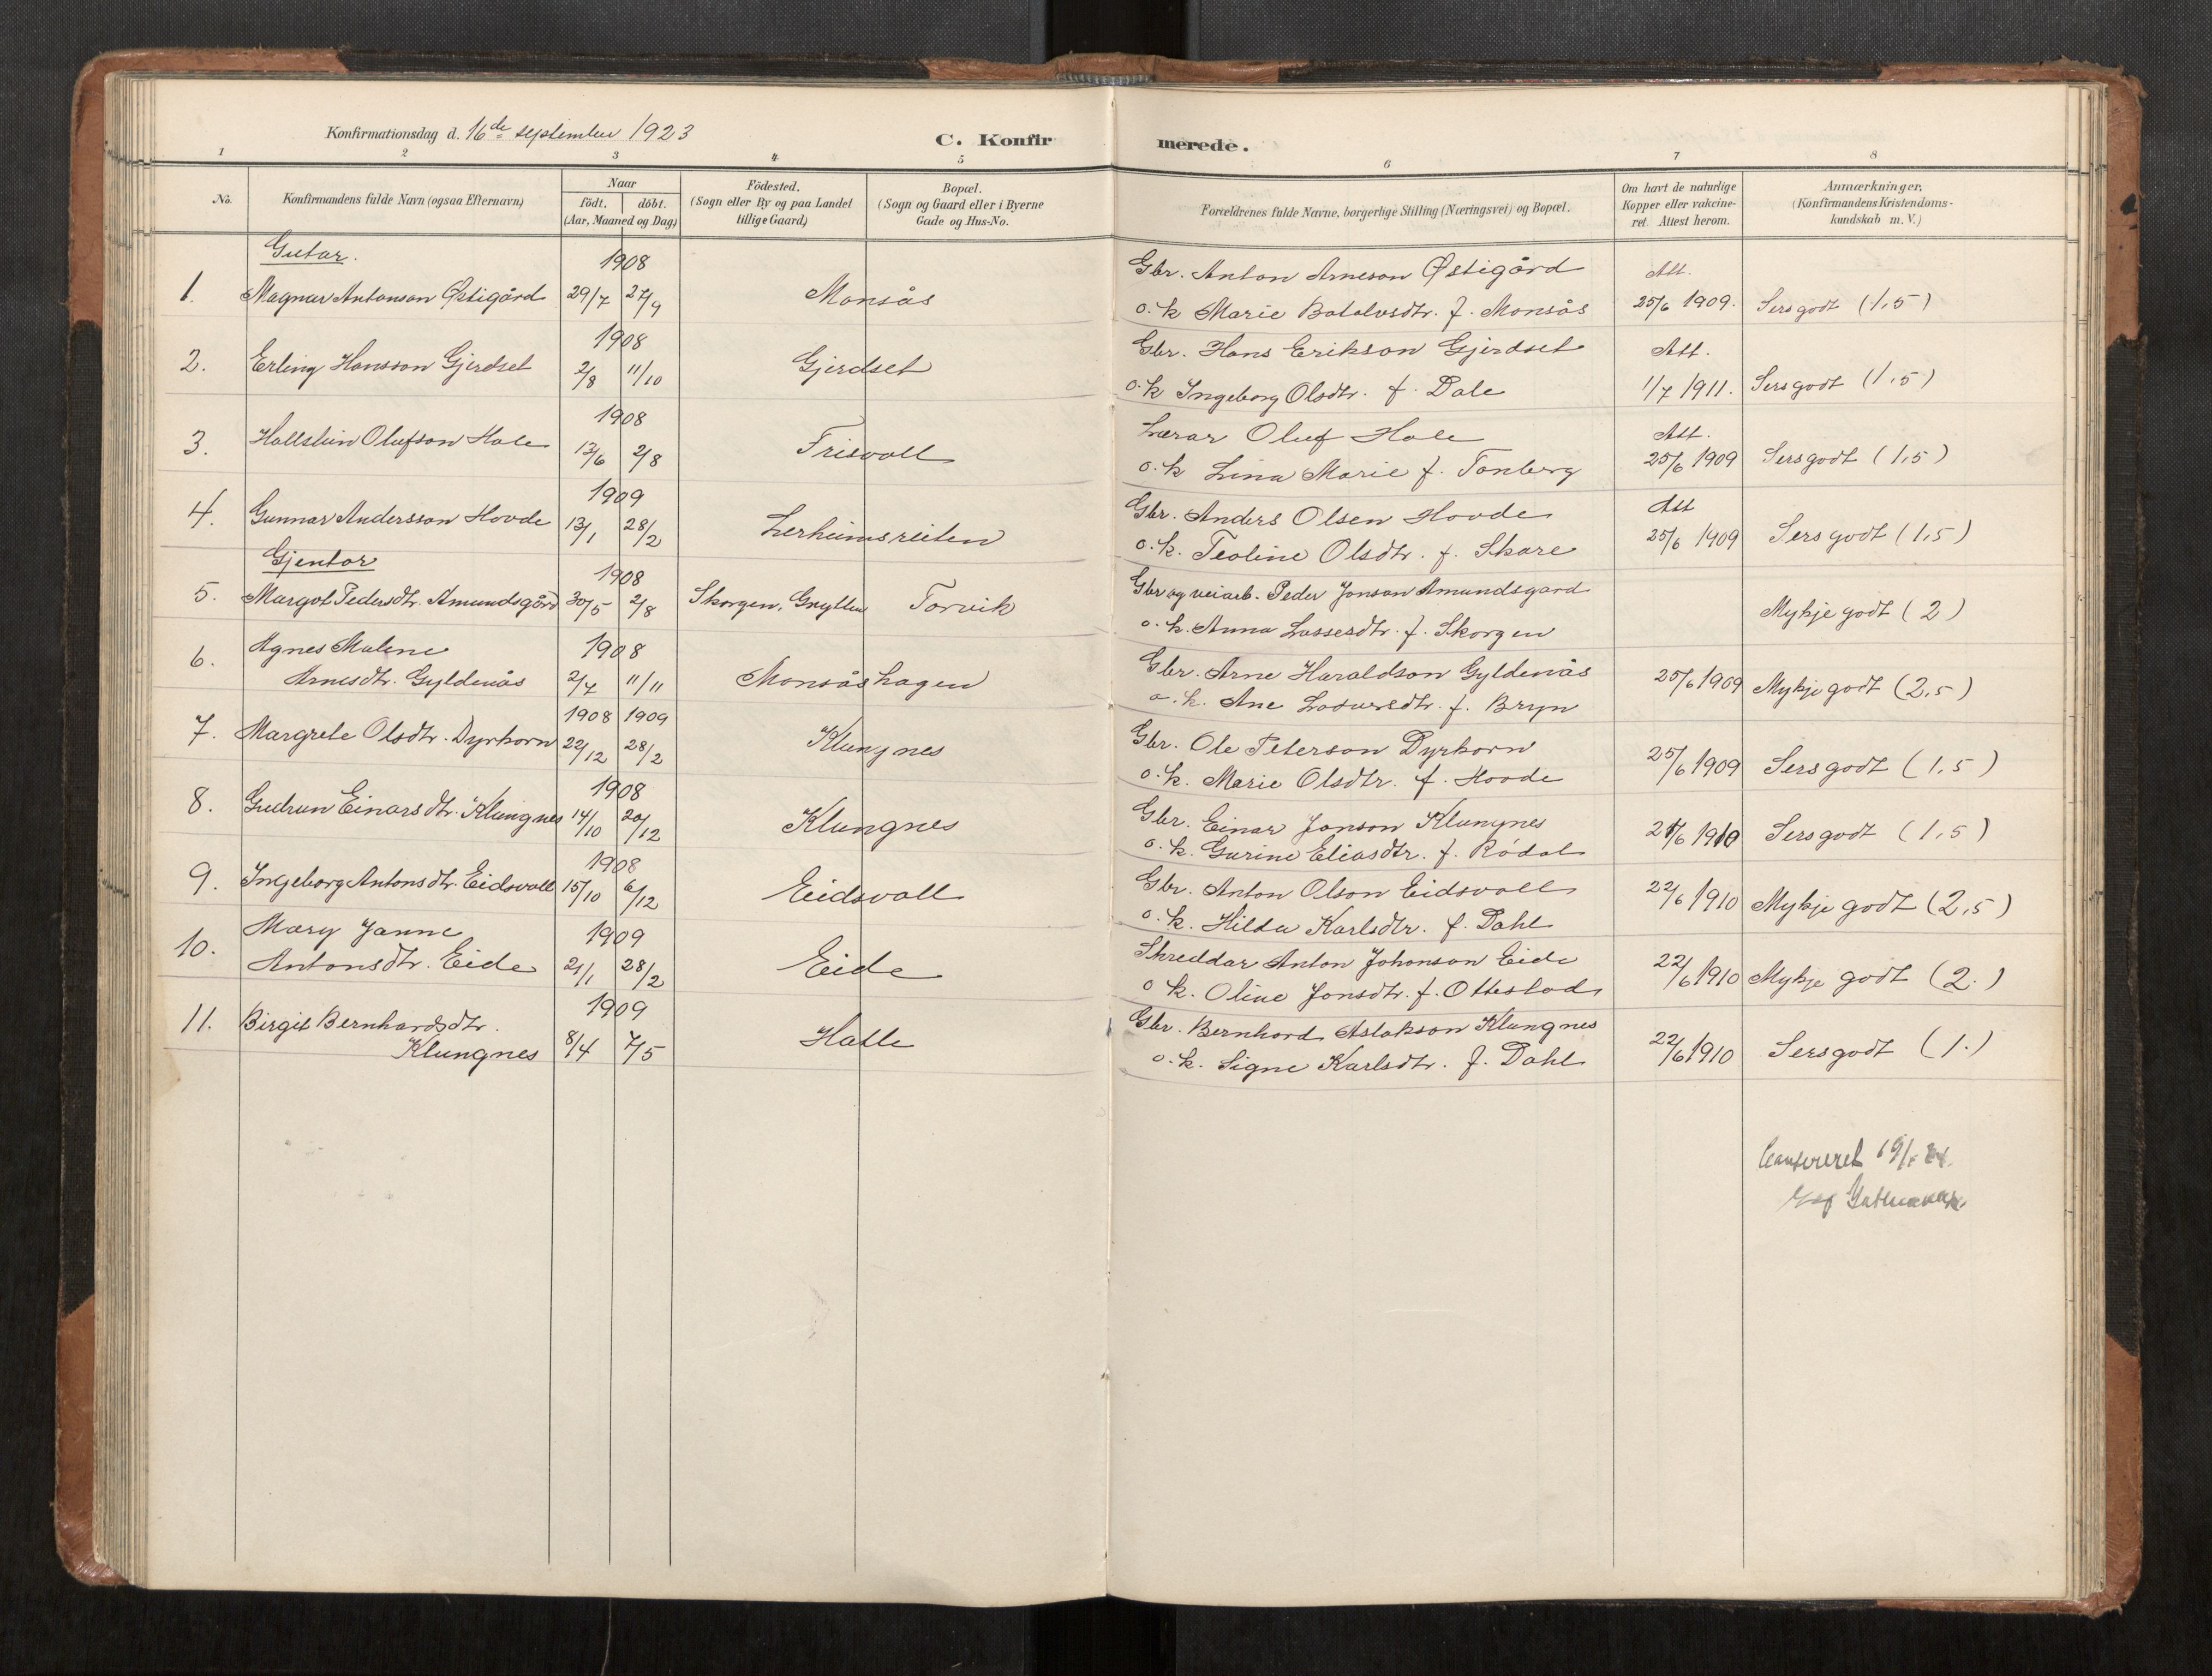 Konfirmationsdag d. 16de september 1923
C. Konfirmerede.
1 2 3 4 5 6 7 8
No.
Konfirmandens fulde Navn (ogsaa Efternavn)
Naar
födt. | döbt.
(Aar, Maaned og Dag)
Födested.
(Sogn eller By og paa Landet
tillige Gaard)
Bopæl.
(Sogn og Gaard eller i Byerne
Gade og Hus-No.
Forældrenes fulde Navne, borgerlige Stilling (Næringsvei) og Bopæl.
Om havt de naturlige
Kopper eller vakcine-
ret. Attest herom.
Anmærkninger,
(Konfirmandens Kristendoms-
kundskab m. V.)
Gutar.
1908
Gbr. Anton Arneson Østigård
Att.
1. Magnar Antonson Østigård 29/7 27/9 Monsås
o. k Marie Botolvsdtr. f. Monsås 25/6 1909. Sers godt (1,5)
1908
Gbr. Hans Erikson Gjerdset Att.
2. Erling Hansson Gjerdset 2/8 11/10 Gjerdset
o. k Ingeborg Olsdtr. f. Dale 1/7 1911. Sers godt (1,5)
1908
Lærar Oluf Hole Att.
3. Hallstein Olufson Hole 13/6 2/8 Frisvoll
o. k Lina Marie f. Tonberg 25/6 1909 Sers godt (1,5)
1909
Gbr. Anders Olsen Hovde Att
4. Gunnar Andersson Hovde 13/1 28/2 Lerheimsreiten
o. k. Teoline Olsdtr. f. Skare 25/6 1909 Sers godt (1,5)
Gjentor
1908
Gbr og veiarb. Peder Jonson Amundsgard
5. Margot Pedersdtr. Amundsgård 30/5 2/8 Skorgen, Grytten Torvik
o. k. Anna Lassesdtr. f. Skorgen Mykje godt (2)
Agnes Malene 1908
Gbr. Arne Haraldson Gyldenås
6. Arnesdtr. Gyldenås 2/7 11/11 Monsåshagen
o. k. Ane Ladversdtr. f. Bryn 25/6 1909 Mykje godt (2,5)
1908 1909
Gbr. Ole Peterson Dyrkorn
7. Margrete Olsdtr. Dyrkorn 22/12 28/2 Klungnes
o. k. Marie Olsdtr. f. Hovde 25/6 1909 Sers godt (1,5)
1908
Gbr. Einar Jonson Klungnes
8. Gudrun Einarsdtr. Klungnes 14/10 20/12 Klungnes
o. k. Gurine Eliasdtr. f. Rødal 21/6 1910 Sers godt (1,5)
1908
Gbr. Anton Olson Eidsvoll
9. Ingeborg Antonsdtr. Eidsvoll 15/10 6/12 Eidsvoll
o. k. Hilda Karlsdtr. f. Dahl 22/6 1910 Mykje godt (2,5)
Mary Janne 1909
Skreddar Anton Johanson Eide
10. Antonsdtr. Eide 21/1 28/2 Eide
o k. Oline Jonsdtr. f. Ottestad 22/6 1910 Mykje godt (2.)
1909
Gbr. Bernhard Aslakson Klungnes
11. Birgit Bernhardsdtr.
Klungnes 8/4 7/5 Hatle
o. k. Signe Karlsdtr. f. Dahl 22/6 1910 Sers godt (1.)